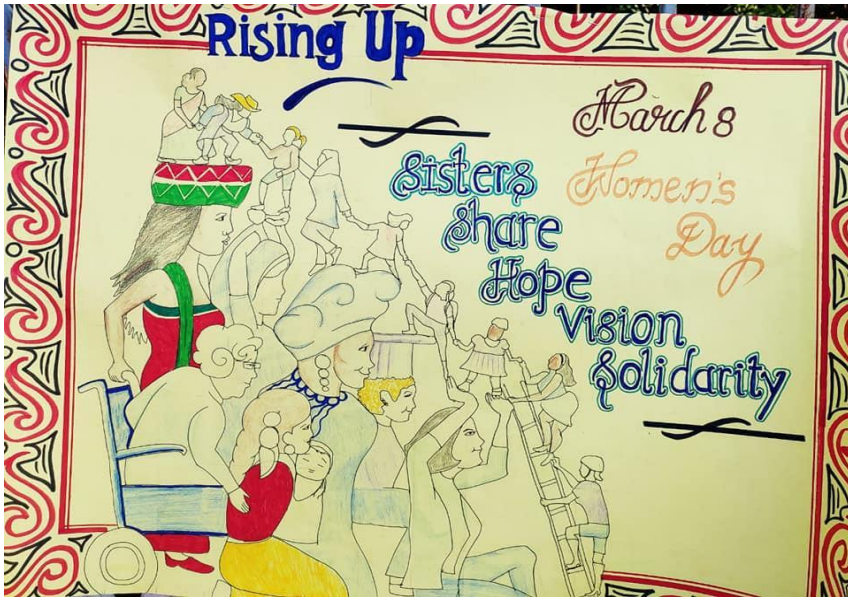 Rising Up
March 8
Women's
Day
Sisters
Share
Hope
Vision
Solidarity